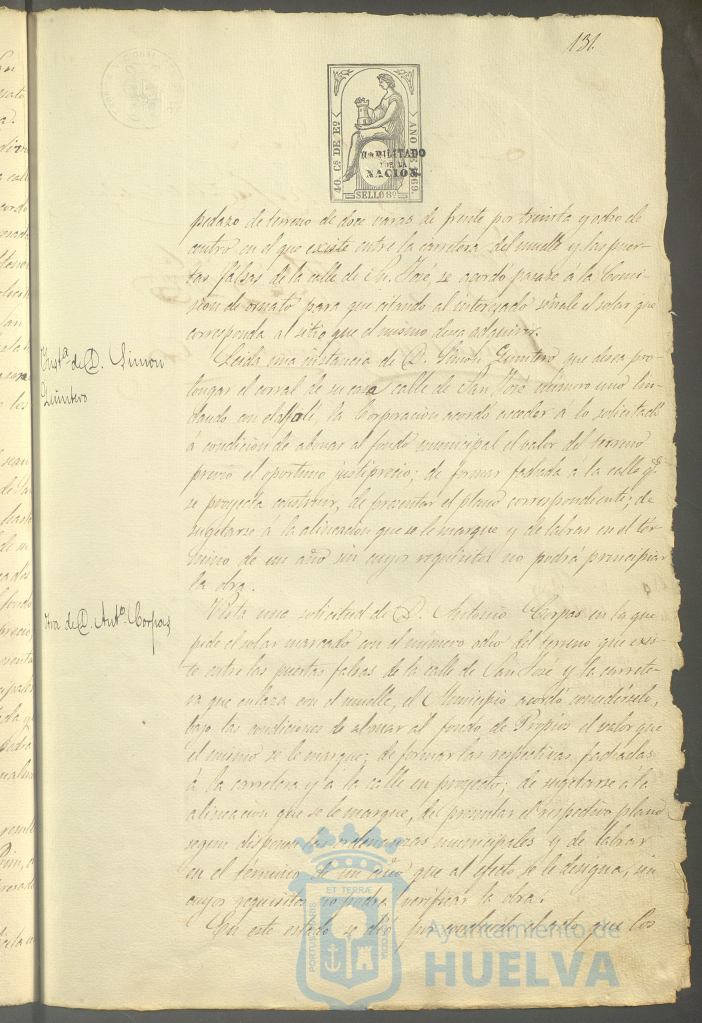 131.
40. Cs DE Eo
AÑO DE 1869.
HABILITADO
POR LA
NACION.
SELLO 8º
pedazo de terreno de doce varas de frente por treinta y ocho de
centro en el que existe entre la carretera del muelle y las puer-
tas falsas de la calle de Sn. José se acordó pasase á la Comi-
sion de ornato para que citando al interesado señale el solar que
corresponda al sitio que el mismo desea adquirir.
Inst.a de D. Simon
Quintero
Leida una instancia de D. Simon Quintero que desea pro-
longar el corral de su casa calle de San José número uno lin-
dando con el la Corporacion acordó acceder a lo solicitado
á condicion de abonar al fondo municipal el valor del terreno
previo el oportuno justiprecio; de formar fachada a la calle qe.
se proyecta construir, de presentar el plano correspondiente; de
sugetarse a la alineacion que se le marque y de labrar en el tér-
mino de un año sin cuyos requisitos no podrá principiar
la obra.
Otra de D. Anto. Corpas
Vista una solicitud de D. Antonio Corpas en la que
pide el solar marcado con el número ocho del terreno que exis-
te entre las puertas falsas de la calle de San José y la carrete-
ra que enlaza con el muelle, el Municipio acordó concedérsele,
bajo las condiciones de abonar al fondo de Propios el valor que
el mismo se le marque; de formar las respectivas fachadas
á la carretera y á la calle en proyecto; de sugetarse a la
alineacion que se le marque, de presentar el respectivo plano
segun disponen las ordenanzas municipales y de labrar
en el término de un año que al efecto se le designa, sin
cuyos requisitos no podrá verificar la obra.
En este estado se dió por que los
Ayuntamiento de
HUELVA
PORTUS MARIS
ET TERRÆ
CUSTODIA